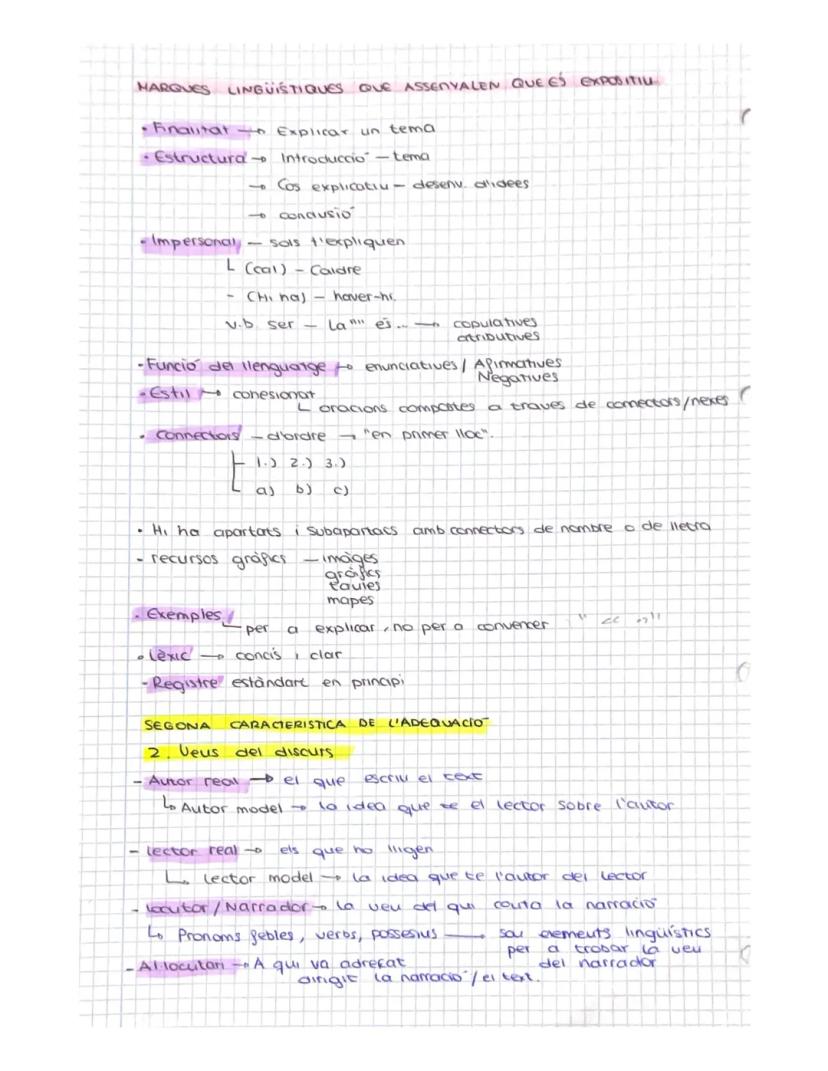 MARQUES LINGÜÍSTIQUES QUE ASSENYALEN QUE ÉS EXPOSITIU
· Finalitat → Explicar un tema
· Estructura → Introducció – tema
→ Cos explicatiu – desenv. d'idees
→ conclusió
· Impersonal – sols t'expliquen
(cal) – Caldre
- (Hi ha) – haver-hi
v.b ser – La "" és... → copulatives
atributives
- Funció del llenguatge → enunciatives / Afirmatives
Negatives
· Estil → cohesionat
oracions compostes a través de connectors/nexes
· Connectors – d'ordre → "en primer lloc".
1.) 2.) 3.)
a) b) c)
· Hi ha apartats i subapartats amb connectors de nombre o de lletra
- recursos gràfics – imàges
gràfics
taules
mapes
· Exemples
per a explicar, no per a convencer " << >> "
· Lèxic → concís i clar
- Registre estàndart en principi
SEGONA CARACTERISTICA DE L'ADEQUACIÓ
2. Veus del discurs
- Autor real → el que escriu el text
↳ Autor model → la idea que te el lector sobre l'autor
- Lector real → els que ho lligen
↳ Lector model → la idea que te l'autor del lector
- Locutor / Narrador → La veu del qui conta la narració
↳ Pronoms febles, verbs, possesius → sou elements lingüístics
per a trobar la veu
del narrador
- Al·locutari → A qui va adreçat
dirigit la narració / el text.